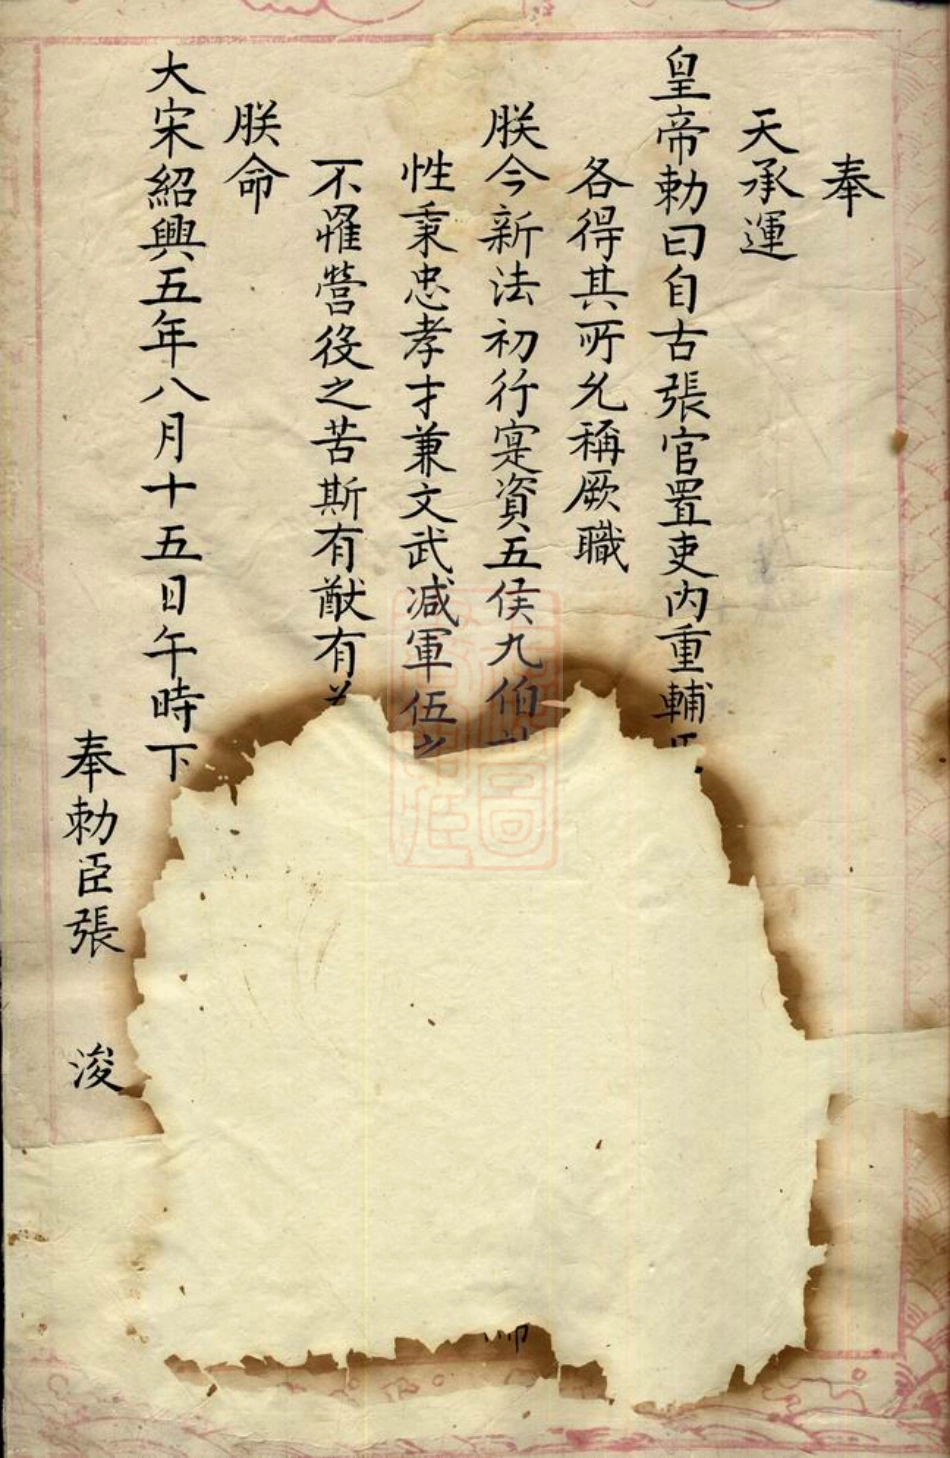 奉
天承運
皇帝勅曰自古張官置吏内重輔
各得其所允稱厥職
朕今新法初行寔資五侯九伯
性秉忠孝才兼文武减軍伍之
不罹營役之苦斯有猷有
朕命
大宋紹興五年八月十五日午時下
奉勅臣張　浚